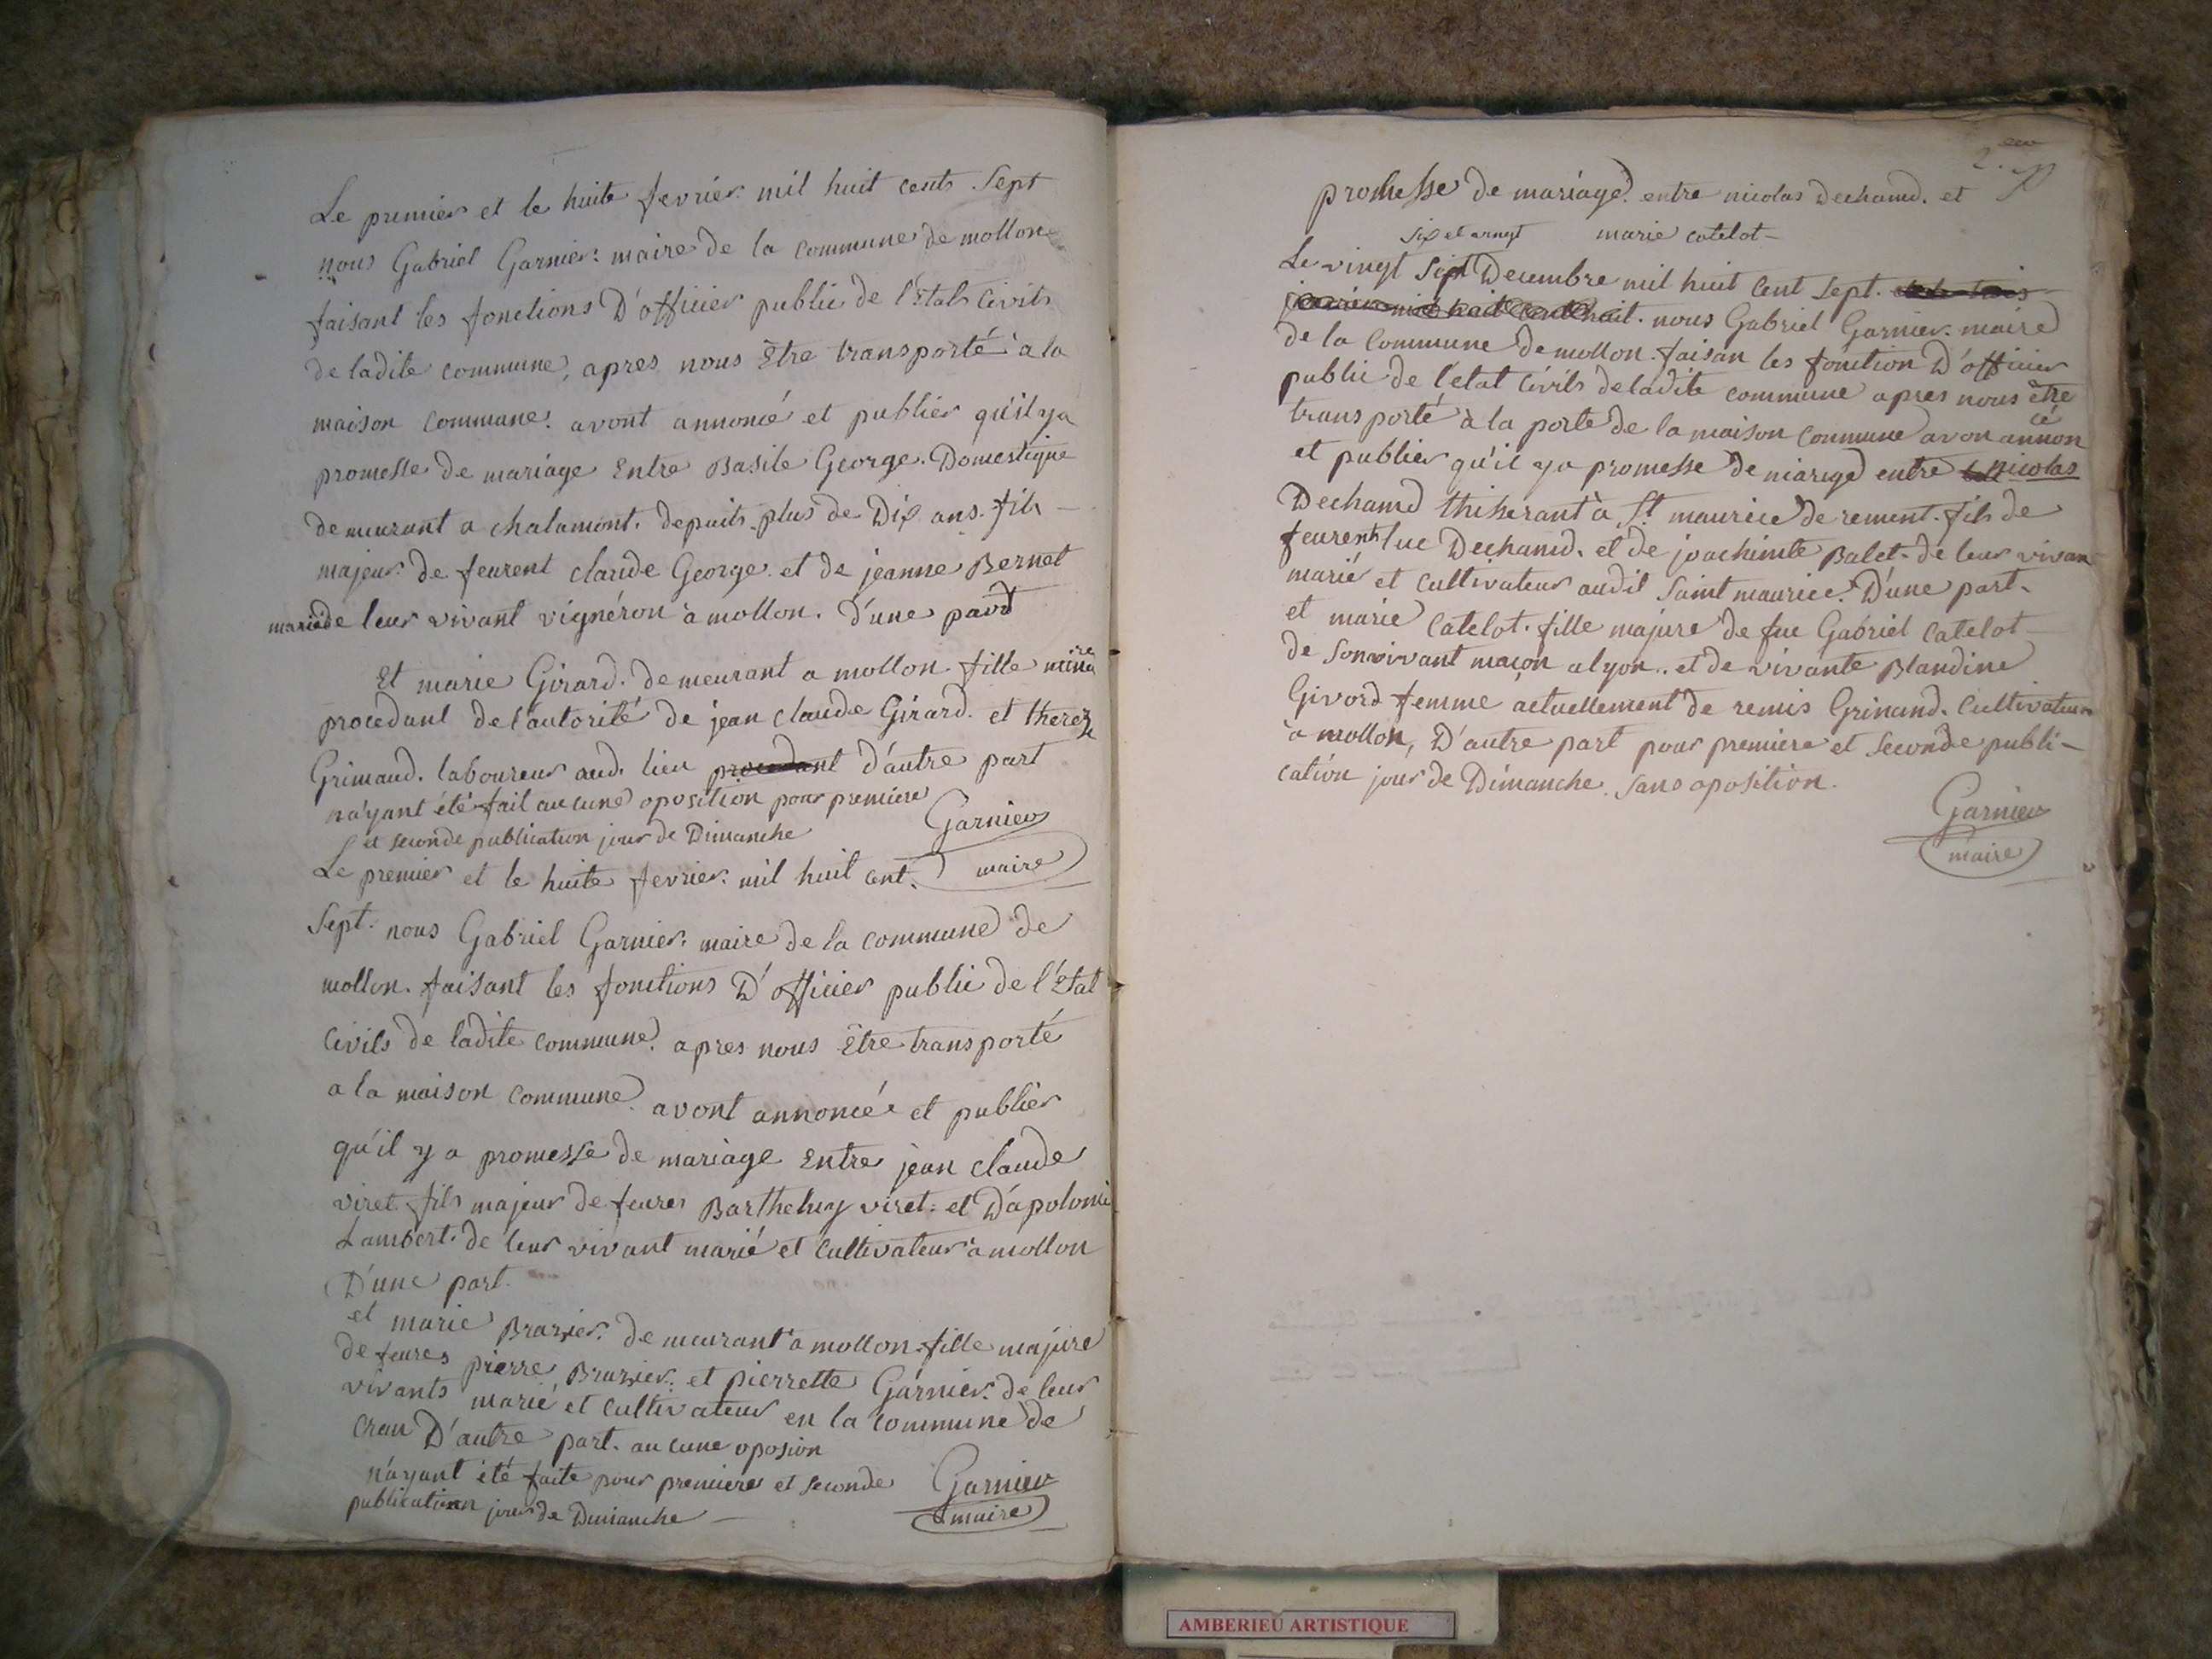 Le premier et le huite fevrier mil huit cents Sept
nous Gabriel Garnier: maire de la commune de mollon
faisant les fonctions D'officier public de l'Etats Civils
de ladite commune, apres nous Etre transporté a la
maison commune. avont annoncé et publier qu'il y a
promesse de mariage Entre Basile George. Domestique
demeurant a chalamont. depuits plus de Dix ans. fils
majeur de feurent claude George et de jeanne Bernet
marié de leur vivant vignéron à mollon. D'une part
Et marie Girard. demeurant a mollon fille mineure
procedant de l'autorité de jean claude Girard. et thereze
Grimaud. laboureur aud. lieu procedant d'autre part
n'ayant été fait aucune oposition pour premiere
et seconde publication jour de Dimanche
Garnier
maire
Le premier et le huite fevrier. mil huit cent.
Sept. nous Gabriel Garnier. maire de la commune de
mollon. faisant les fonctions D'officier public de l'Etat
Civils de ladite commune. apres nous Etre transporté
a la maison commune. avont annoncé et publier
qu'il y a promesse de mariage Entre jean claude
viret fils majeur de feures Barthelmy viret. et D'apolonie
Lambert. de leur vivant marié et cultivateur a mollon
D'une part.
et marie Brazier. demeurant a mollon fille majure
de feures pierre Brazier. et pierrette Garnier. de leur
vivants marié et cultivateur en la commune de
cran D'autre part. aucune oposion
n'ayant été faite pour premiere et seconde
publication jour de Dimanche
Garnier
maire
promesse de mariage. entre nicolas Dechamd. et
marie catelot
Le vingt Sept Decembre mil huit Cent Sept.
nous Gabriel Garnier. maire
de la Commune de mollon. faisan les fonction D'officier
public de l'etat Civils de ladite commune apres nous être
transporté à la porte de la maison commune avon annoncé
et publier qu'il ya promesse de mariage entre nicolas
Dechamd à St maurice de rement. fils de
feurent luc Dechamd. et de Balet. de leur vivan
marié et cultivateur audit Saint maurice. D'une part.
et marie Catelot. fille majure de feu Gabriel Catelot
de Son vivant maçon a lyon.. et de vivante Blandine
Givord femme actuellement de remis Grimaud. Cultivateur
à mollon, D'autre part pour premiere et Seconde publi-
cation jour de Dimanche. Sans oposition.
Garnier
maire
AMBERIEU ARTISTIQUE